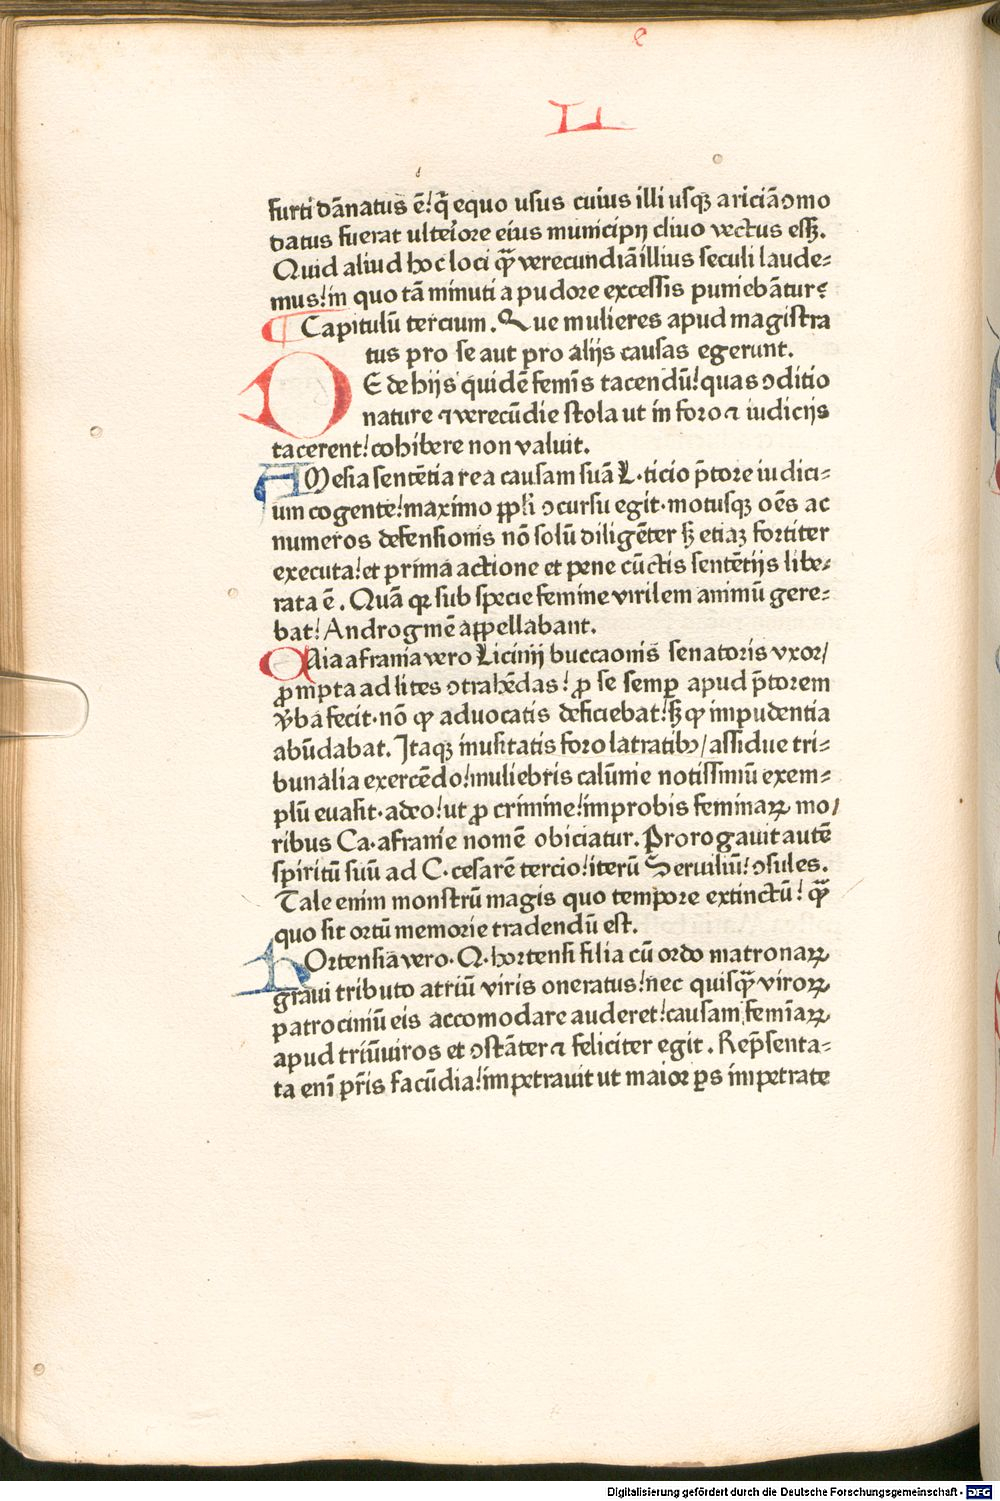 e
L I
furti dānatus ē! q̄ equo usus cuius illi usqꝫ ariciā ɔmo
datus fuerat ulteiore eius municipij clivo vectus essꝫ.
Quid aliud hoc loci qꝫ̄ verecundiā illius seculi laude⸗
mus! in quo tā minuti a pudore excessis puniebātur?
Capitulū tercium. Que mulieres apud magistra
tus pro se aut pro alijs causas egerunt.
DE de hijs quidē femīs tacendū! quas ɔditio
nature ⁊ verecūdie stola ut in foro ⁊ iudicijs
tacerent! cohibere non valuit.
AMesia sentētia rea causam suā L. ticio p̄tore iudici⸗
um cogente! maximo ꝓpli ɔcursu egit. motusqꝫ oēs ac
numeros defensionis nō solū diligēter sꝫ etiaꝫ fortiter
executa! et prima actione et pene cūctis sentētijs libe⸗
rata ē. Quā qꝛ sub specie femine virilem animū gere⸗
bat! Androgmē appellabant.
CAia afrania vero Licinij buccaonis senatoris vxor/
ꝓmpta ad lites ɔtrahēdas! ꝓ se semꝑ apud p̄torem
v̄ba fecit. nō ꝙ advocatis deficiebat! sꝫ ꝙ impudentia
abūdabat. Itaqꝫ inusitatis foro latratibꝰ/ assidue tri⸗
bunalia exercēdo! muliebris calūnie notissimū exem⸗
plū evasit. adeo! ut ꝓ crimine! improbis feminaꝝ mo/
ribus Ca. afranie nomē obiciatur. Prorogavit autē
spiritū suū ad C. cesarē tercio! iterū Servuliū! ɔsules.
Tale enim monstrū magis quo tempore extinctū! qꝫ̄
quo sit ortū memorie tradendū est.
HOrtensia vero. Q. hortensi filia cū ordo matronaꝝ
gravi tributo a triū viris oneratus! nec quisqꝫ̄ viroꝝ
patrociniū eis accomodare auderet! causam femīaꝝ
apud triūviros et ɔstāter ⁊ feliciter egit. Rep̄senta⸗
ta eni p̄ris facūdia! impetravit ut maior ꝑs impetrate
Digitalisierung gefördert durch die Deutsche Forschungsgemeinschaft - DFG